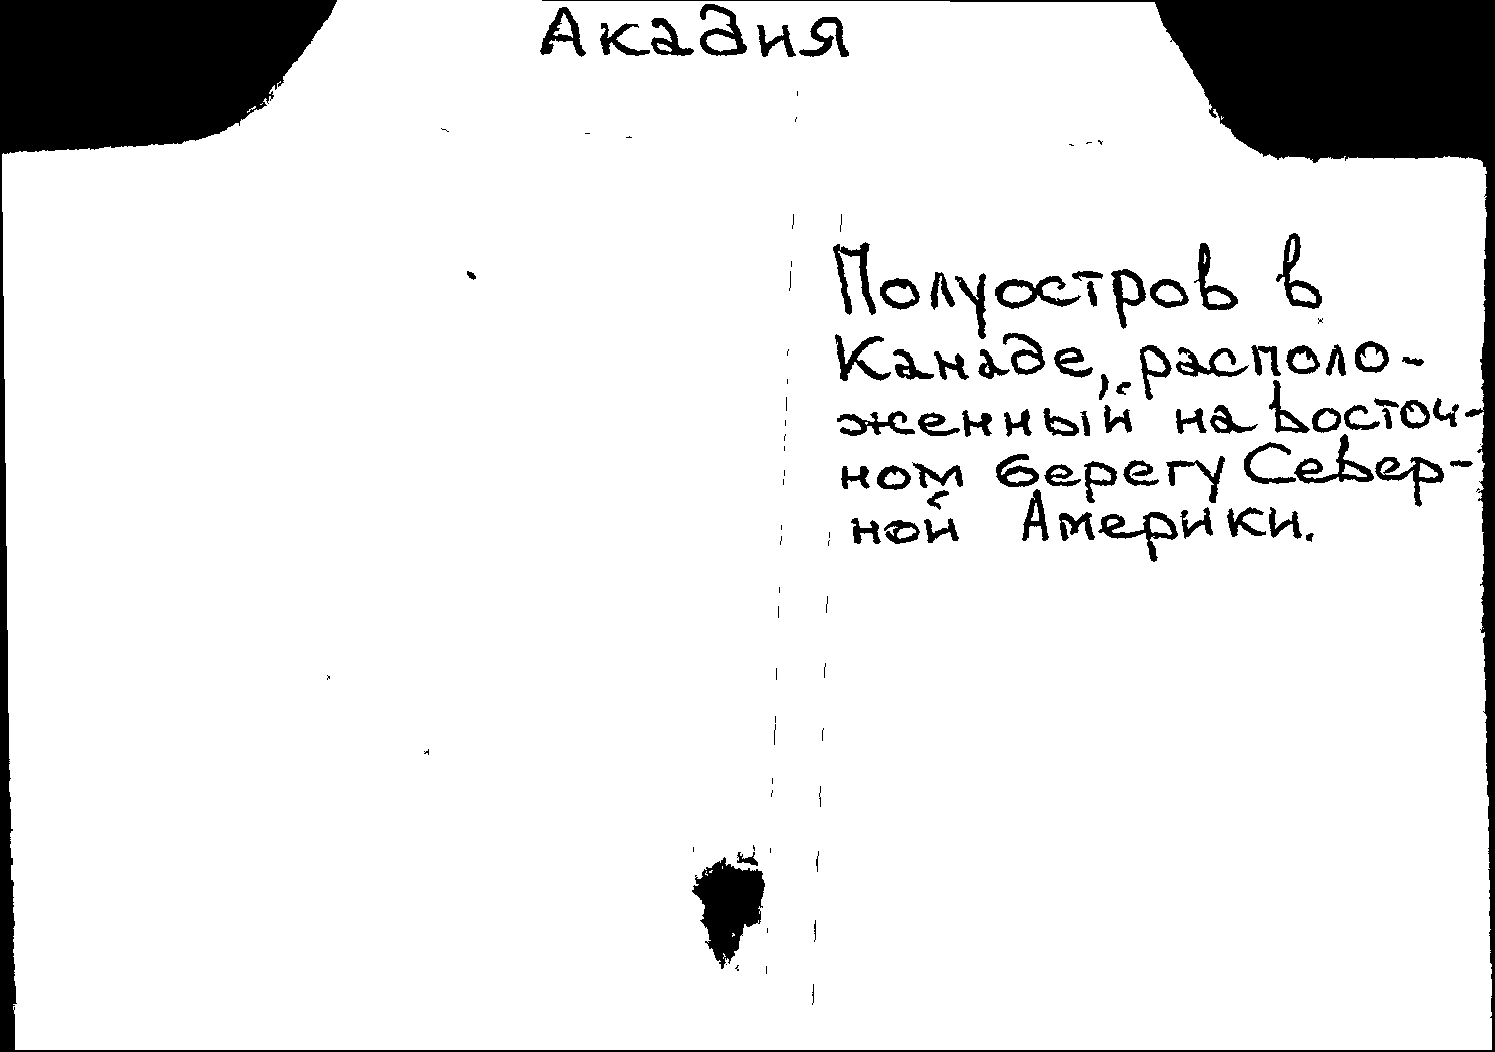 Акадия
Полуостров в
Канаде, располо-
женный на восточ-
ном берегу Север-
ной Америки.